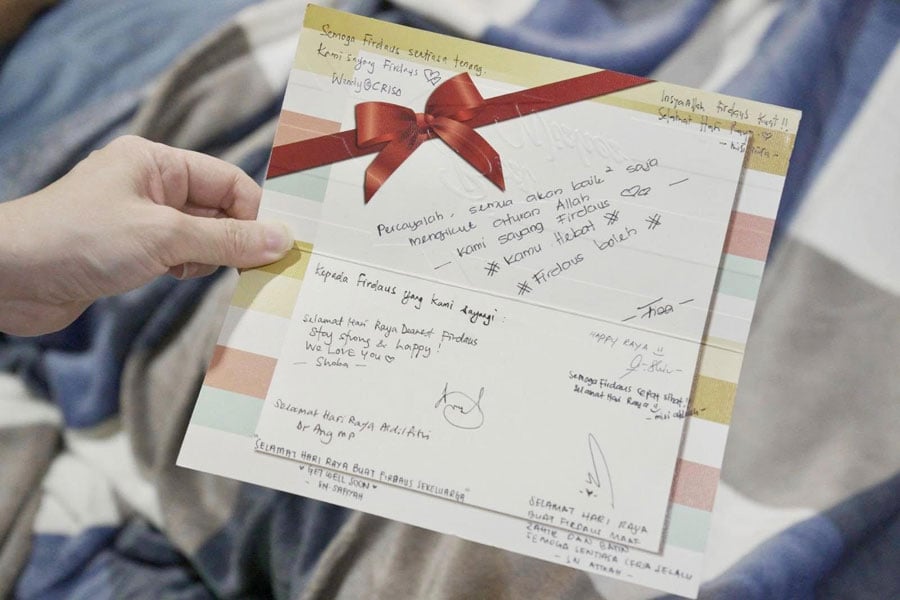 Semoga Firdaus sentiasa tenang.
Kami sayang Firdaus
Wendy@CRISO
InsyaAllah Firdaus Kuat!!
Selamat Hari Raya
Percayalah, semua akan baik² saja
mengikut aturan Allah
- Kami sayang Firdaus -
# Kamu Hebat #
# Firdaus boleh #
Kepada Firdaus yang kami sayangi :
Selamat Hari Raya Dearest Firdaus
Stay strong & happy!
We Love You
- Shoba -
HAPPY RAYA !!
Semoga Firdaus cepat sihat!!
Selamat Hari Raya
Selamat Hari Raya Aidilfitri
Dr Ang MP
"SELAMAT HARI RAYA BUAT FIRDAUS SEKELUARGA"
GET WELL SOON
- SN. SAFIYAH
SELAMAT HARI RAYA
BUAT FIRDAUS MAAF
ZAHIR DAN BATIN
SEMOGA SENTIASA CERIA SELALU
- SN ATIKAH -